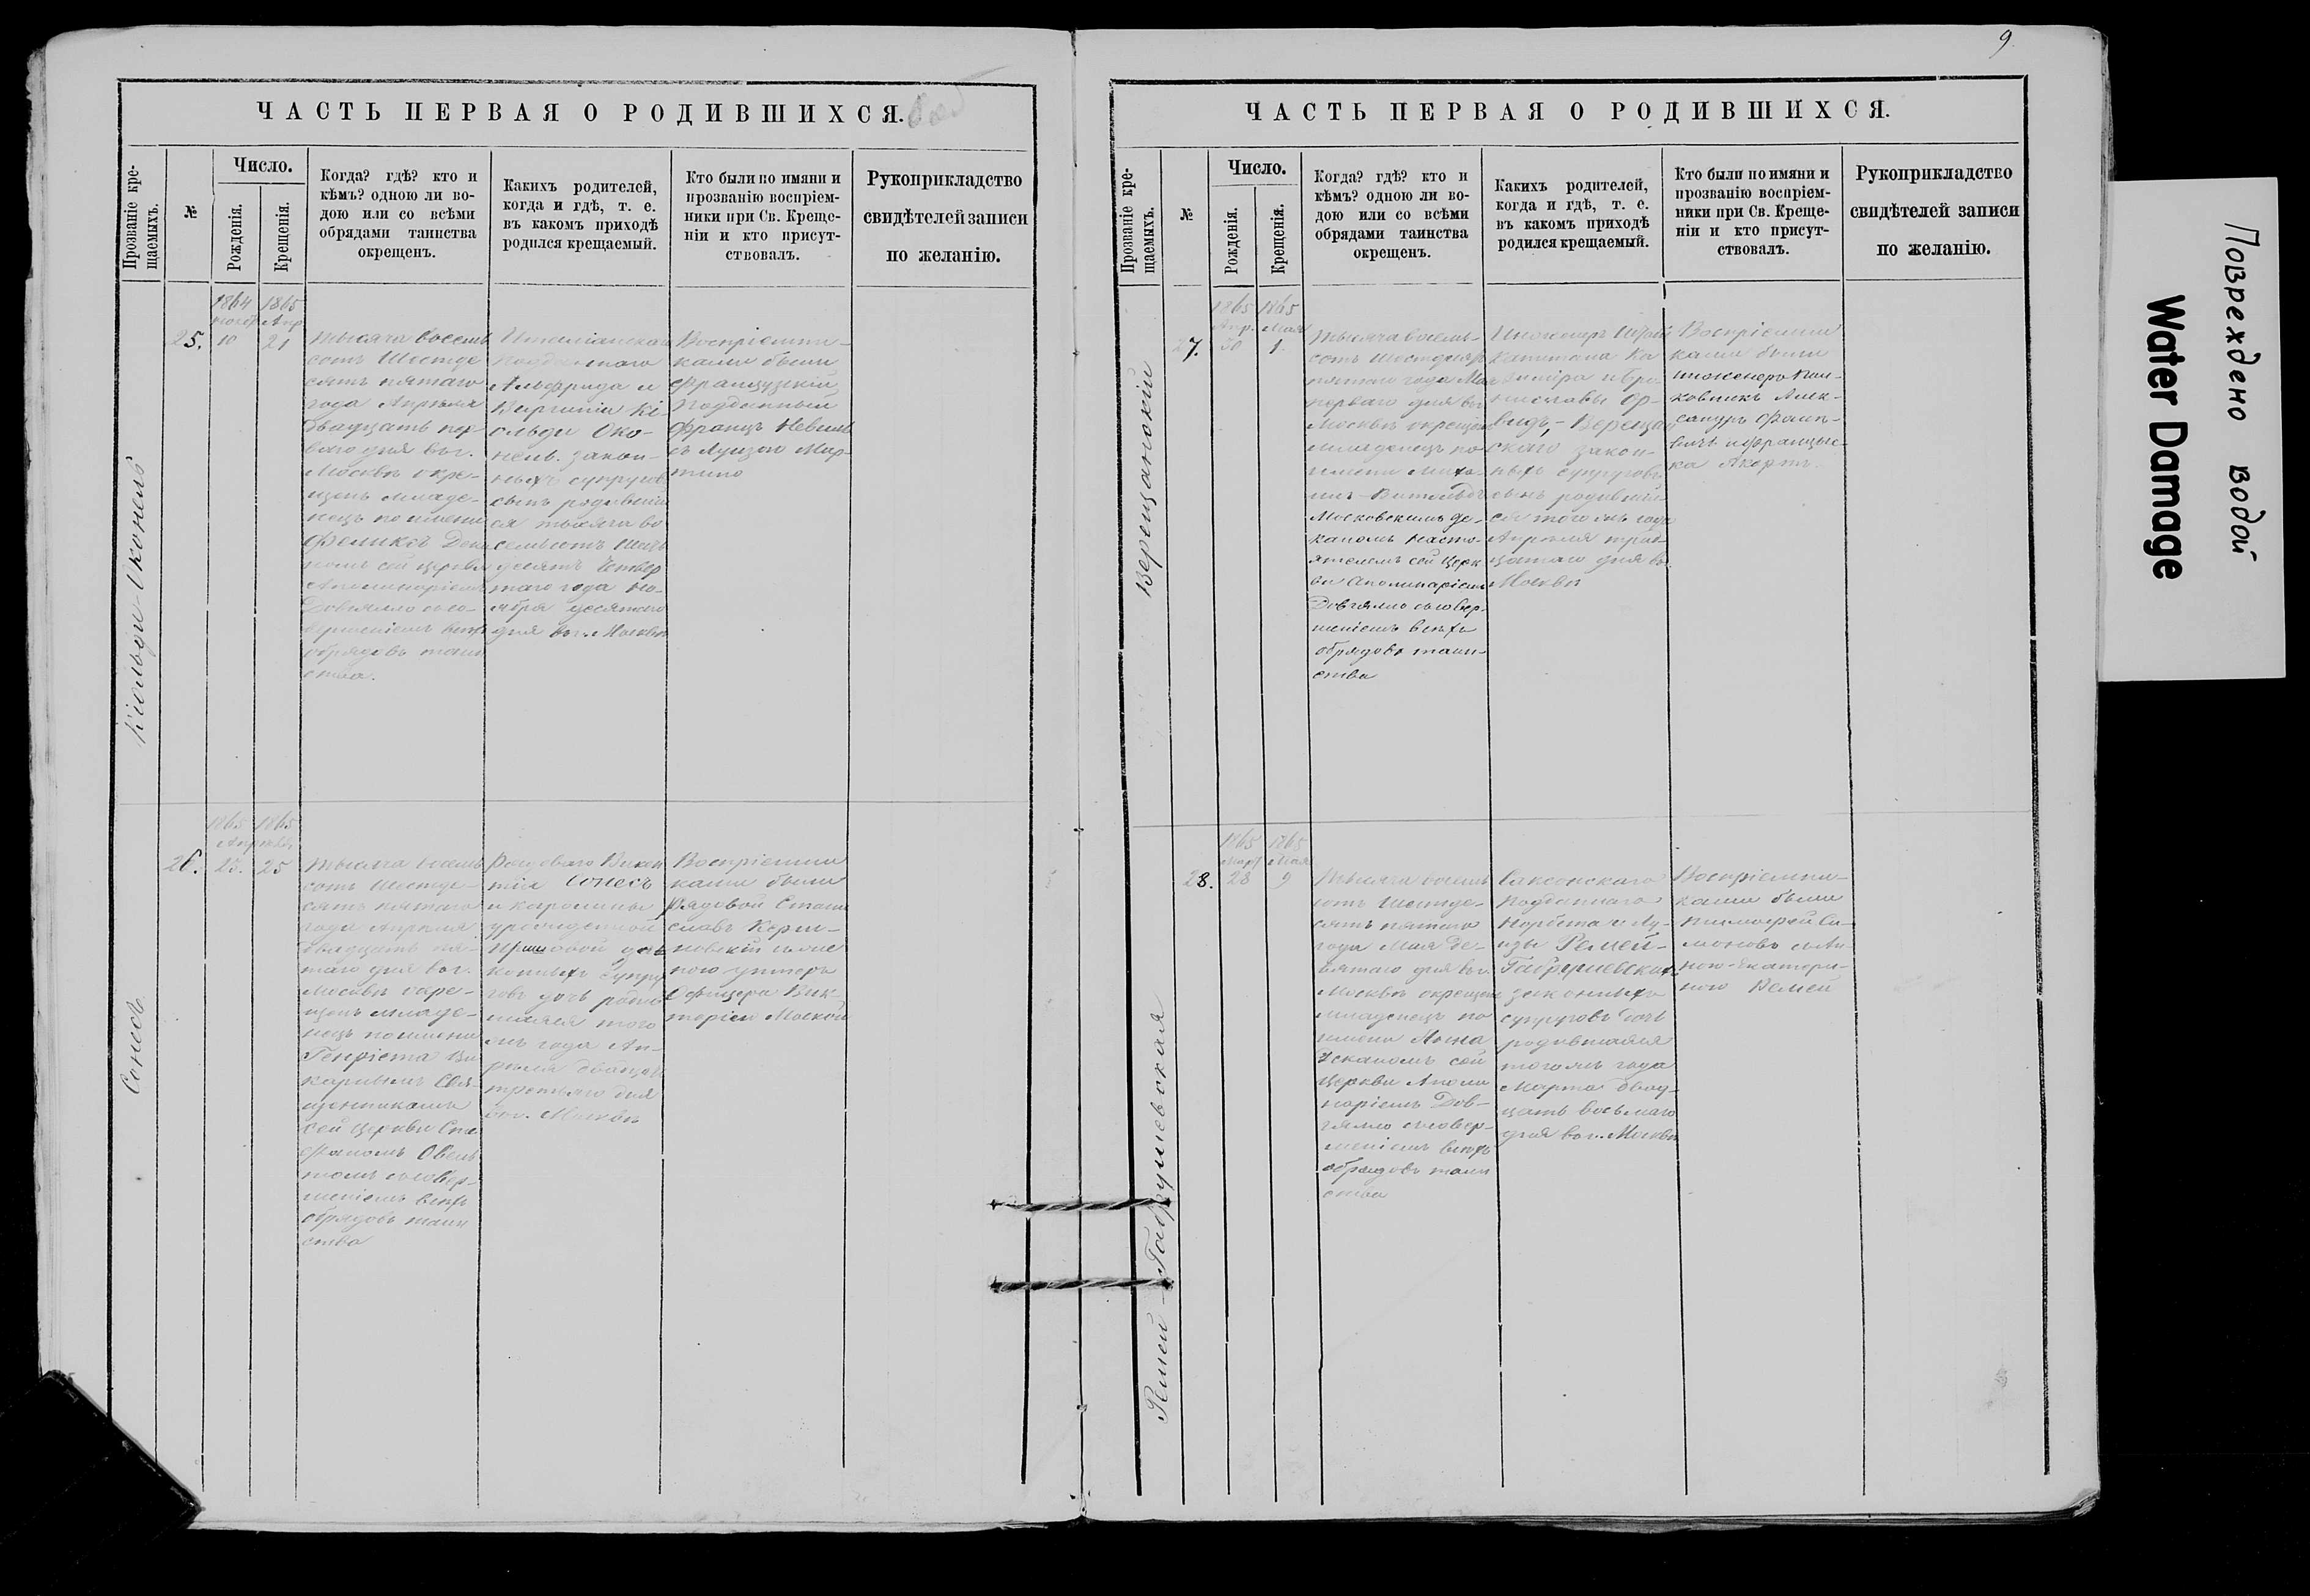 ЧАСТЬ ПЕРВАЯ О РОДИВШИХСЯ.
Прозваніе кре-
щаемыхъ.
№
Число.
Рожденія.
Крещенія.
Когда? гдѣ? кто и
кѣмъ? одною ли во-
дою или со всѣми
обрядами таинства
окрещенъ.
Какихъ родителей,
когда и гдѣ, т. е.
въ какомъ приходѣ
родился крещаемый.
Кто были по имяни и
прозванію воспріем-
ники при Св. Креще-
ніи и кто присут-
ствовалъ.
Рукоприкладство
свидѣтелей записи
по желанію.
Кіольди-Оконель
25.
1864
10
1865
Апр
21
Тысяча восемь
сотъ шестьде
сятъ пятаго
года Апрѣля
двадцать пер
ваго дня въ г.
Москвѣ окре-
щенъ младе-
нецъ по имени
Феликсъ Дека
номъ сей церкви
Аполинаріемъ
Довгялло съ со-
вершеніемъ всѣхъ
обрядовъ таин
ства.
Италіанскаго
подданнаго
Альфрида и
Виргиніи Кі-
ольди Око-
нель. закон-
ныхъ супруговъ
сынъ родивший
ся тысяча во
семьсотъ шесть
десятъ четвер
таго года Но-
ября десятаго
дня въ г. Москвѣ
Воспріемни-
ками были
Французскій
подданный
Францъ
съ Луизою Мар-
тино
Сонесъ
26.
1865
Апрѣля
23.
1865
25
Тысяча восемь
сотъ шестьде-
сятъ пятаго
года Апрѣля
двадцать пя-
таго дня въ г.
Москвѣ окре-
щенъ младе-
нецъ по имени
Генріета Ви
карнымъ Свя-
щенникомъ
сей церкви Сте
фаномъ
съ совер-
шеніемъ всѣхъ
обрядовъ таин
ства
Рядоваго Викен
тія Сонесъ
и Каролины
урожденной
за
конныхъ супру
говъ дочь роди
шаяся того
жъ года Ап-
рѣля двадцать
третьяго дня
въ г. Москвѣ
Воспріемни
ками были
Рядовой Стани
славъ
новскій съ
ною унтеръ
Офицера Вик-
торіею
9
ЧАСТЬ ПЕРВАЯ О РОДИВШИХСЯ.
Прозваніе кре-
щаемыхъ.
№
Число.
Рожденія.
Крещенія.
Когда? гдѣ? кто и
кѣмъ? одною ли во-
дою или со всѣми
обрядами таинства
окрещенъ.
Какихъ родителей,
когда и гдѣ, т. е.
въ какомъ приходѣ
родился крещаемый.
Кто были по имяни и
прозванію воспріем-
ники при Св. Креще-
ніи и кто присут-
ствовалъ.
Рукоприкладство
свидѣтелей записи
по желанію.
Верещанскій
27.
1865
Апр.
30
1865
Мая
1.
Тысяча восемь-
сотъ шестьдесятъ
пятаго года Мая
перваго дня въ г.
Москвѣ окрещенъ
младенецъ по
имени Миха-
илъ-Витольдъ
Московскимъ де-
каномъ насто-
ятелемъ сей церк
ви Аполинаріемъ
Довгялло съ совер-
шеніемъ всѣхъ
обрядовъ таин-
ства
Инженеръ Штабъ
Капитана Ка
зиміра и Бро
ниславы
законъ-
ныхъ супруговъ
сынъ родивший-
ся того жъ года
Апрѣля трид-
цатаго дня въ г.
Москвѣ
Воспріемни
ками были
инженеръ Пол-
ковникъ Алек-
сандръ
и Францис-
ка
Ремей-Габрушевская
28.
1865
Март
28
1865
Мая
9
Тысяча восемь
сотъ шестьде-
сятъ пятаго
года Мая де-
вятаго дня въ г.
Москвѣ окрещенъ
младенецъ по
имени Анна
Деканомъ сей
церкви Аполи
наріемъ Дов-
гялло съ совер-
шеніемъ всѣхъ
обрядовъ таин
ства
Саксонскаго
подданнаго
Норберта и Лу-
изы Ремей-
Габрушевскихъ
законныхъ
супруговъ дочь
родившаяся
того жъ года
Марта двад-
цать восьмаго
дня въ г. Москвѣ
Воспріемни-
ками были
Тимофей Си-
моновъ съ Ан-
ною-Екатери-
ною Ремей
Повреждено водой
Water Damage